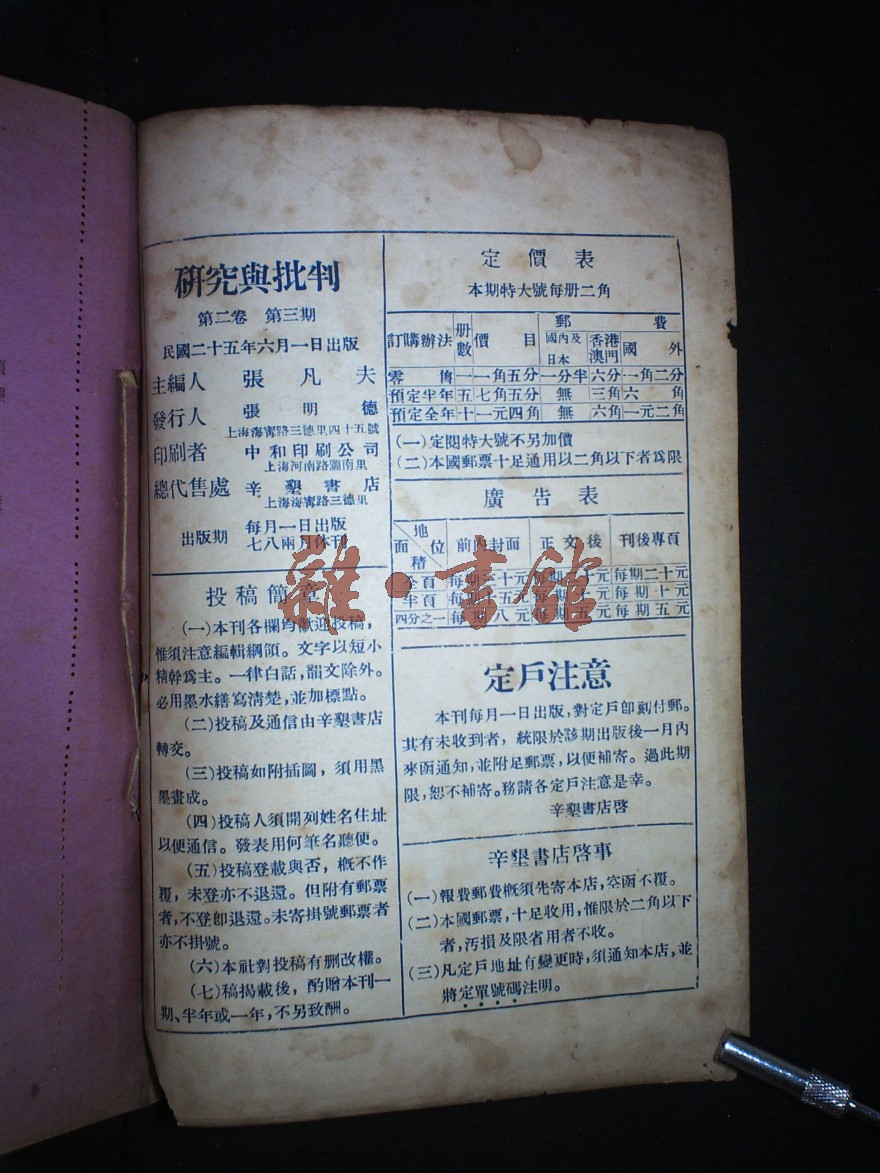 研究與批判
第二卷 第三期
民國二十五年六月一日出版
主編人 張凡夫
發行人 張明德
上海海甯路三德里四十五號
印刷者 中和印刷公司
上海河南路 南里
總代售處 辛墾書店
上海海甯路三德里
出版期 每月一日出版
七八兩月休刊
投稿簡章
(一)本刊各欄均歡迎投稿,
惟須注意編輯綱領。文字以短小
精幹爲主。一律白話,韻文除外。
必用墨水繕寫清楚,並加標點。
(二)投稿及通信由辛墾書店
轉交。
(三)投稿如附插圖,須用黑
墨畫成。
(四)投稿人須開列姓名住址
以便通信。發表用何筆名聽便。
(五)投稿登載與否,槪不作
覆,未登亦不退還。但附有郵票
者,不登卽退還。未寄掛號郵票者
亦不掛號。
(六)本社對投稿有刪改權。
(七)稿揭載後,酌贈本刊一
期、半年或一年,不另致酬。
定價表
本期特大號每册二角
訂購辦法 册數 價目 郵費
國內及日本 香港澳門 國外
零售 一 一角五分 一分半 六分 一角二分
預定半年 五 七角五分 無 三角 六角
預定全年 十 一元四角 無 六角 一元二角
(一)定閱特大號不另加價
(二)本國郵票十足通用以二角以下者爲限
廣告表
地位 面積 前內封面 正文後 刊後專頁
全頁 每期三十元 每期二十元 每期二十元
半頁 每期十五元 每期十元 每期十元
四分之一 每期八元 每期五元 每期五元
定戶注意
本刊每月一日出版,對定戶卽刻付郵。
其有未收到者,統限於該期出版後一月內
來函通知,並附足郵票,以便補寄。過此期
限,恕不補寄。務請各定戶注意是幸。
辛墾書店啓
辛墾書店啓事
(一)報費郵費槪須先寄本店,空函不覆。
(二)本國郵票,十足收用,惟限於二角以下
者,污損及限省用者不收。
(三)凡定戶地址有變更時,須通知本店,並
將定單號碼注明。
雜·書館